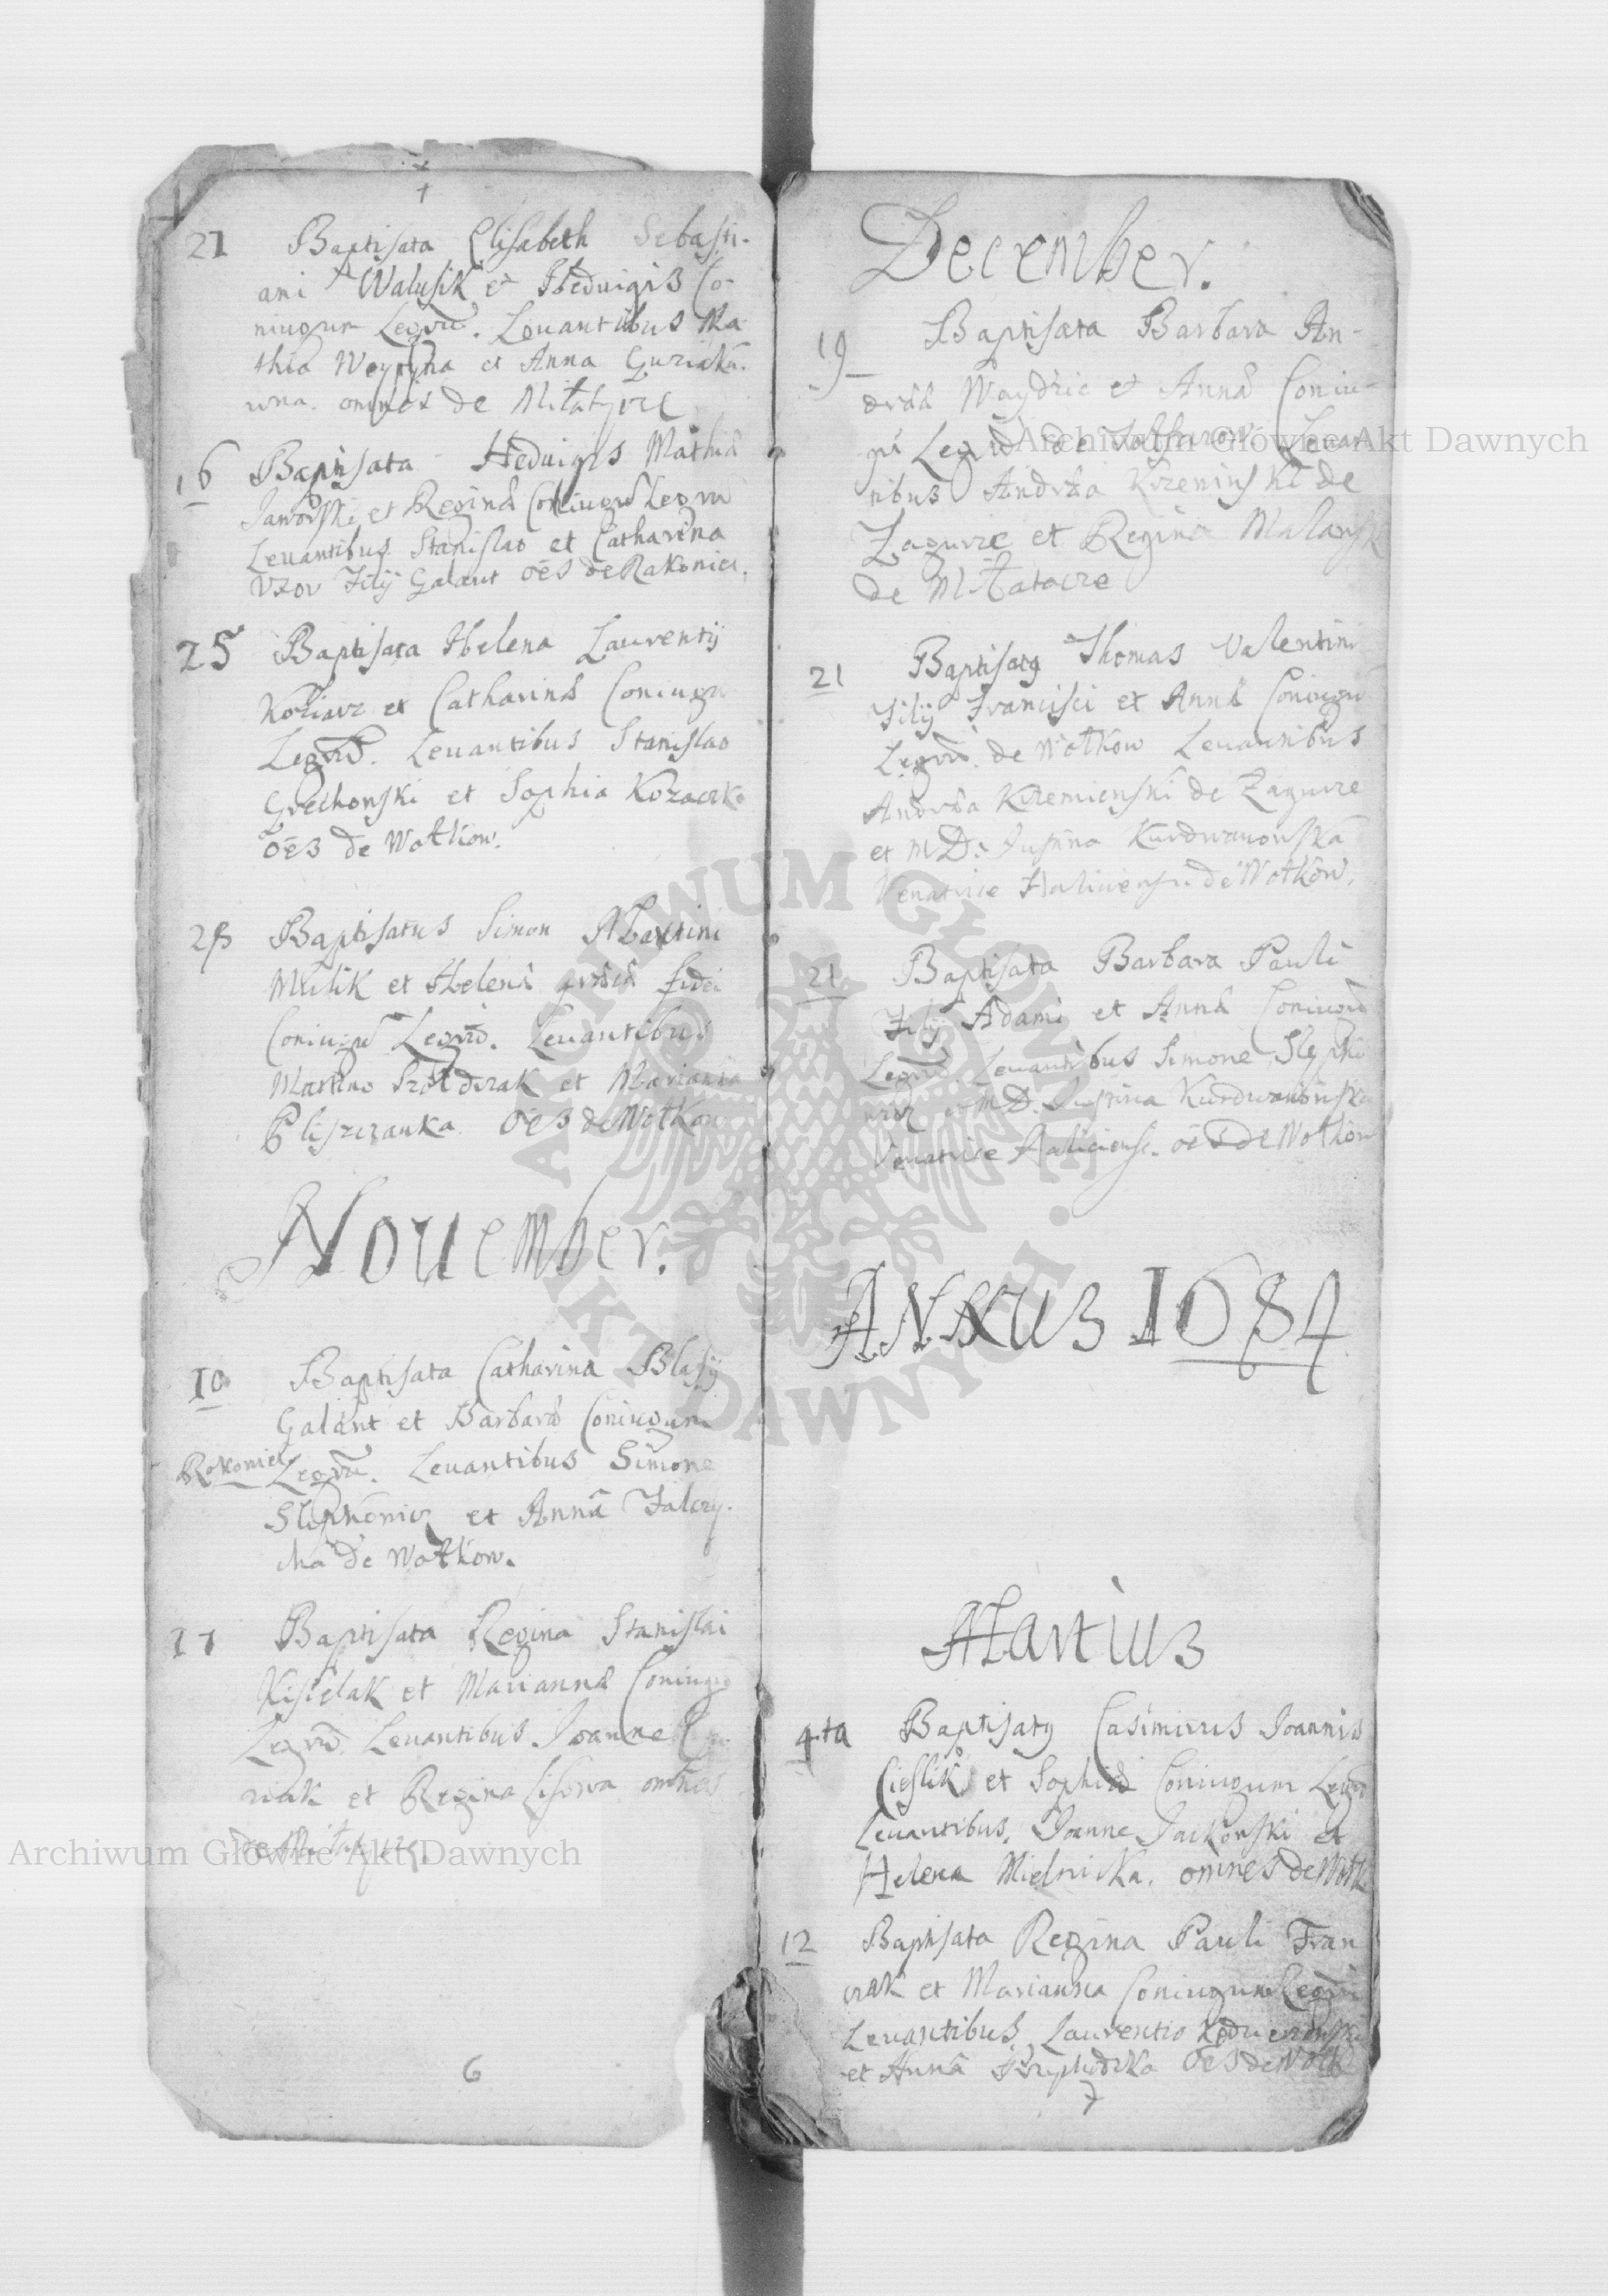 21 Baptisata Elisabeth Sebasti-
ani Walusik et Heduigis Co-
niugum Legru. Leuantibus Ma
thia et Anna
wna. omnes de
16 Baptisata Heduigis Mathiæ
Jaworski et Reginæ Coniugu Legru
Leuantibus Stanislao et Catharina
Vxor Filij Galant oēs de Rakoniec.
25 Baptisata Helena Laurentij
Koziarz et Catharinæ Coniugu
Legru. Leuantibus Stanislao
Grechonski et Sophia Kozacka
oēs de Wotkow.
28 Baptisatus Simon Martini
Mulik et Helenæ fidei
Coniugu Legru. Leuantibus
Martino et Marianna
Pliszczanka oēs de Wotkow
Nouember.
10 Baptisata Catharina Blasij
Galant et Barbaræ Coniugum
Rokoniec Legru. Leuantibus Simone
et Anna
cha de Wotkow.
17 Baptisata Regina Stanislai
Kisielak et Mariannæ Coniugu
Legru. Leuantibus Joanne
niak et Regina Lisowa omnes
de
6
December.
19 Baptisata Barbara An-
dreæ Waydzic et Annæ Coniu-
gu Legru de Leuan
tibus Andrea Krzeminski de
Zagurze et Regina
de
21 Baptisatq Thomas Valentini
Filij Francisci et Annæ Coniugu
Legru. de Wotkow Leuantibus
Andrea Krzemienski de Zagurze
et MD: Justina Kurdwanowska
Venatrice Haliciensi de Wotkow.
21 Baptisata Barbara Pauli
Filij Adami et Annæ Coniugu
Legru. Leuantibus Simone Slepko
wicz et MD. Justina Kurdwanowska
Venatrice Haliciensi. oēs de Wotkow
ANNUS 1684
Martius
4ta Baptisatq Casimirus Joannis
Cieslik et Sophiæ Coniugum Legru
Leuantibus, Joanne Jackowski et
Helena Mielnicka. omnes de Wotk
12 Baptisata Regina Pauli Fran
czak et Marianna Coniugum Legru
Leuantibus, Laurentio
et Anna oēs de Wotk
7
Archiwum Główne Akt Dawnych
Archiwum Główne Akt Dawnych
ARCHIWUM GŁÓWNE
AKT DAWNYCH